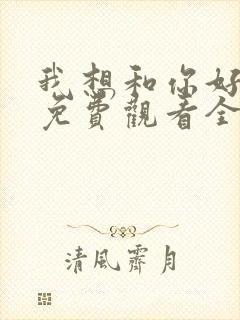 我想和你好
免費觀看全
清風霽月